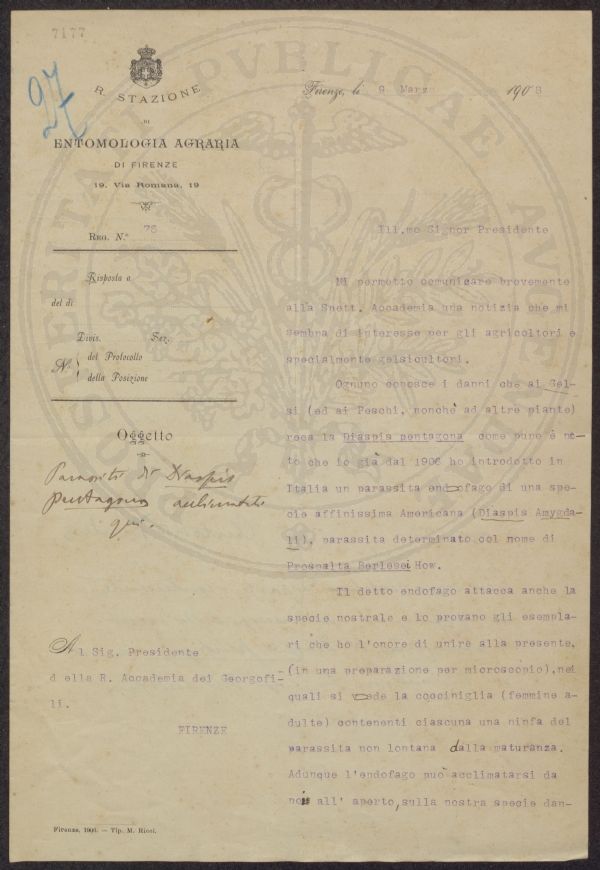 7177
27
R. STAZIONE
DI
ENTOMOLOGIA AGRARIA
DI FIRENZE
19, Via Romana, 19
REG. N.° 76
Risposta a
del di
Divis. Sez.
N.° del Protocollo
della Posizione
Oggetto
Parassiti di Diaspis
pentagona acclimatati
qui.
Al Sig. Presidente
d ella R. Accademia dei Georgofi-
li.
FIRENZE
Firenze, 1906. — Tip. M. Ricci.
Firenze, li 9 Marzo 1908
Ill.mo Signor Presidente
Mi permetto comunicare brevemente
alla Spett. Accademia una notizia che mi
sembra di interesse per gli agricoltori e
specialmente gelsicultori.
Ognuno conosce i danni che ai Gel-
si (ed ai Peschi, nonchè ad altre piante)
reca la Diaspis pentagona come pure è no-
to che io già dal 1906 ho introdotto in
Italia un parassita endofago di una spe-
cie affinissima Americana (Diaspis Amygda-
li), parassita determinato col nome di
Prospalta Berlesei How.
Il detto endofago attacca anche la
specie nostrale e lo provano gli esempla-
ri che ho l'onore di unire alla presente,
(in una preparazione per microscopio),nei
quali si vede la cocciniglia (femmine a-
dulte) contenenti ciascuna una ninfa del
parassita non lontana dalla maturanza.
Adunque l'endofago può acclimatarsi da
noi all' aperto,sulla nostra specie dan-
POSTERITATI PVBLICAE